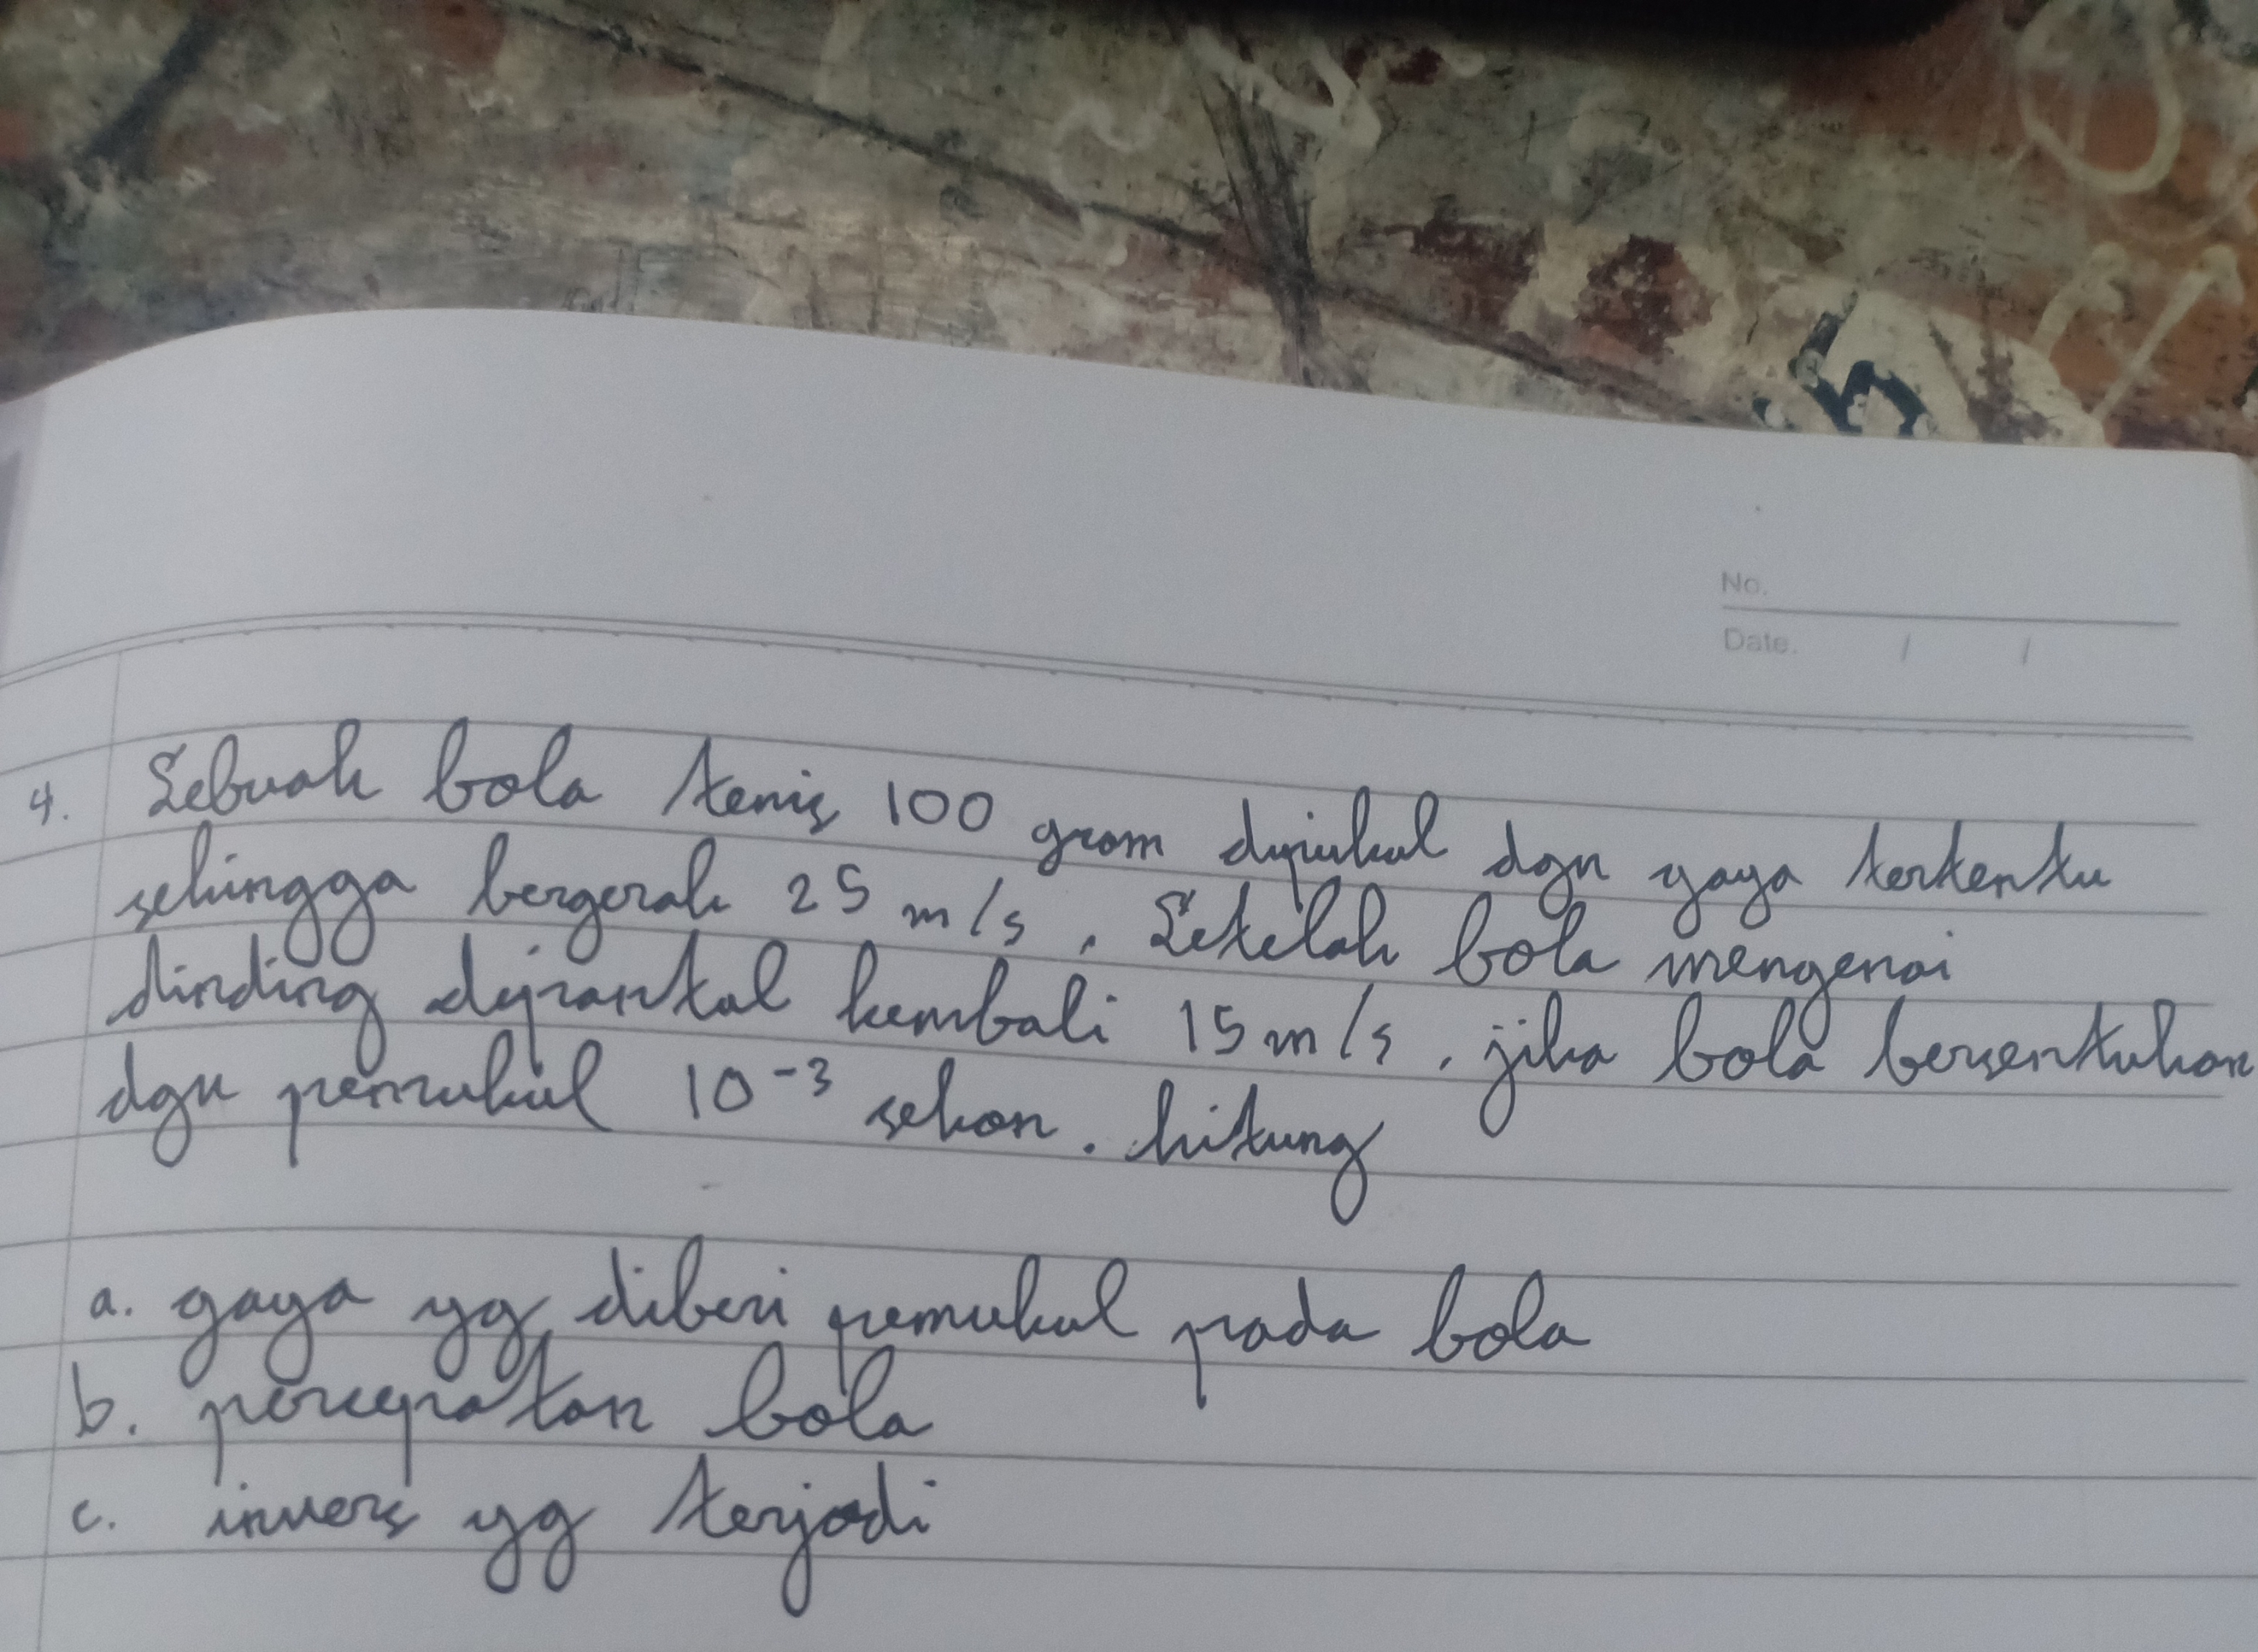 No.
Date. / /
4. Sebuah bola tenis 100 gram dipukul dgn gaya tertentu
sehingga bergerak 25 m/s. Setelah bola mengenai
dinding dipantul kembali 15 m/s. jika bola bersentuhan
dgn pemukul 10⁻³ sekon. hitung
a. gaya yg diberi pemukul pada bola
b. percepatan bola
c. invers yg terjadi